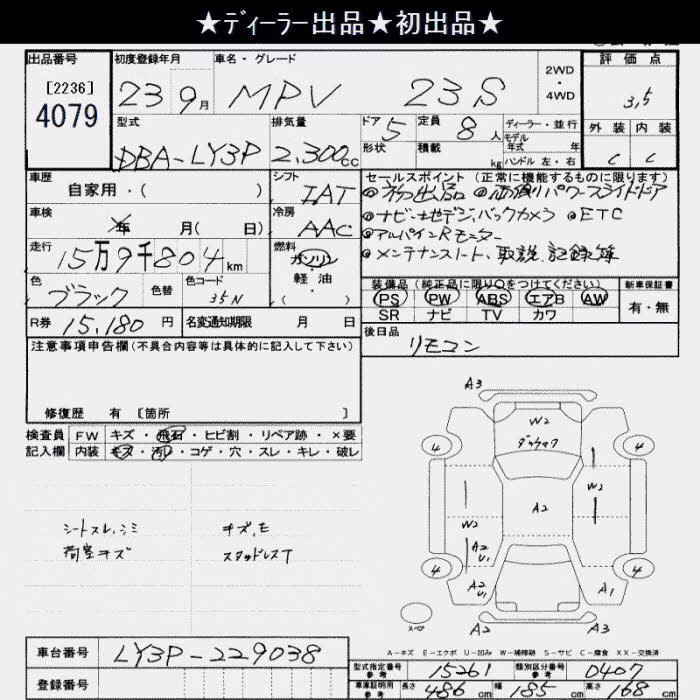 ★ディーラー出品★初出品★
出品番号 初度登録年月 車名・グレード 2WD・4WD 評価点
[2236]
4079
23 9月 MPV 23S 3.5
型式 排気量 ドア 5 定員 8人 ディーラー・並行 外装 内装
形状 積載 kg モデル年式 年 ハンドル 左・右
DBA-LY3P 2,300cc C C
車歴 シフト セールスポイント(正常に機能するものに限ります)
自家用・( ) IAT ◎初出品 ◎両側パワースライドドア
車検 冷房 ◎ナビ・地デジ、バックカメラ ◎ETC
年 月( 日) AAC ◎アルパインRモニター
走行 燃料 ◎メンテナンスノート、取説、記録簿
15万9千804km ガソリン・軽油・( )
色 色替 色コード 装備品(純正品に限り○をつけてください) 新車保証書
ブラック 35N PS PW ABS エアB AW 有・無
SR ナビ TV カワ
R券 15,180円 名変通知期限 月 日 後日品
リモコン
注意事項申告欄(不具合内容等は具体的に記入して下さい)
修復歴 有 [箇所 ]
検査員 FW キズ・飛石・ヒビ割・リペア跡・×要
記入欄 内装 キズ・汚レ・コゲ・穴・スレ・キレ・破レ
シートスレ、シミ キズ、E
荷室キズ スタッドレスT
A3
W2
4 4
A2
W2 W2
A2 U1
4 4
A2 U1 A1
スペア A2 A3
A-キズ E-エクボ U-凹み W-補修跡 S-サビ C-腐食 XX-交換済
車台番号 LY3P-229038
型式指定番号 参考 15261 類別区分番号 参考 0407
登録番号
車庫証明用 参考 長さ 486cm 幅 185cm 高さ 168cm